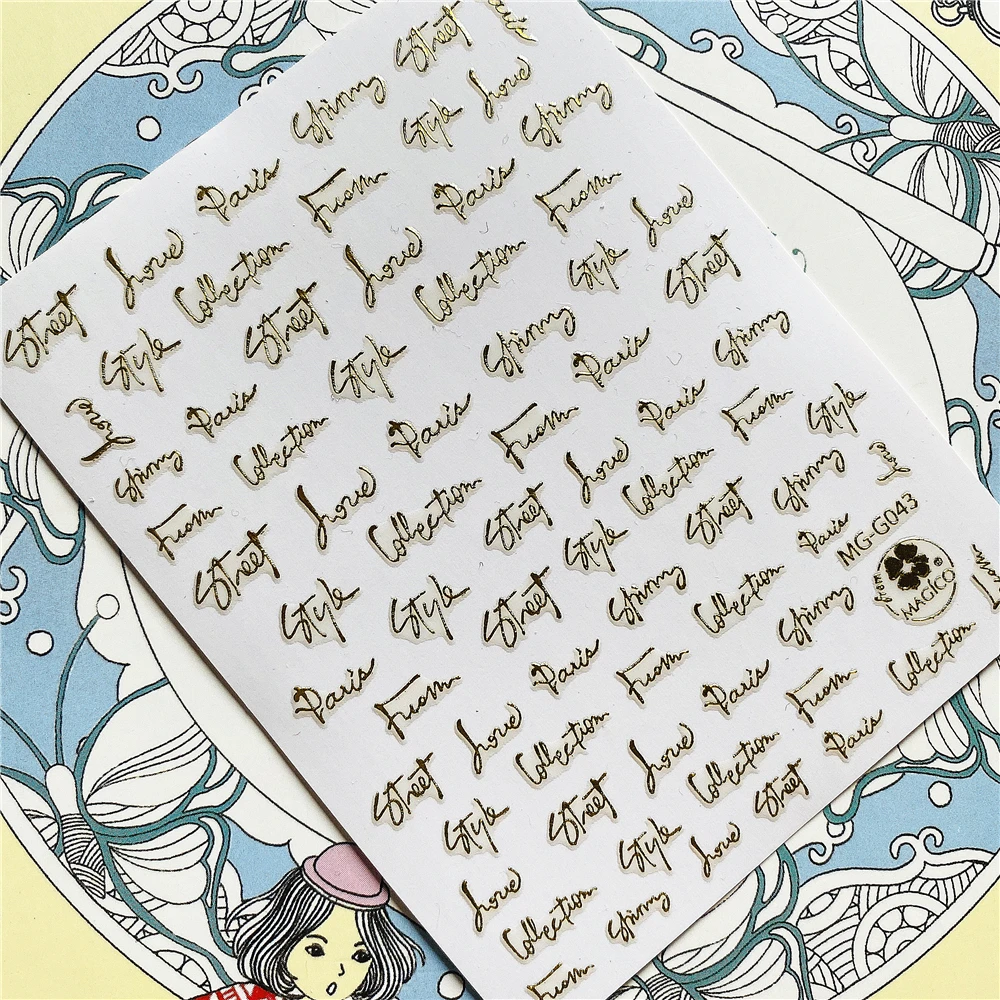 Street
Shinny Style Love Shinny
Paris From Paris From
Love Collection Love Collection Style Love
Street Style Street Style Shinny Paris Street
Shinny
Love Paris Collection Paris From Paris From Style
Shinny Love Collection Street Love Collection Shinny Love
From Street Style Street Paris
MG-G043
MAGICO®
Style Style Street Shinny Collection Shinny
Paris From Paris From Paris From Collection
Love Collection Love Collection Paris
Street Style Street Style Love Street
Love Collection Shinny
From